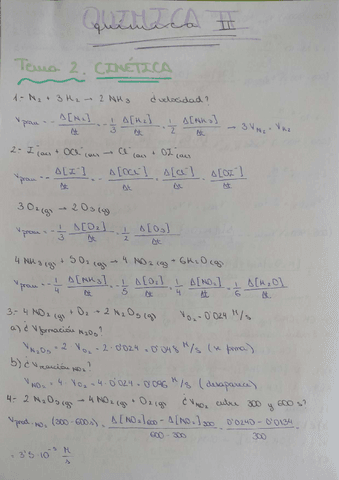 QUIMICA II
química II
Tema 2. CINÉTICA
1- N₂ + 3H₂ → 2 NH₃ ¿velocidad?
Vprom = - Δ[N₂]/Δt = - 1/3 Δ[H₂]/Δt = 1/2 Δ[NH₃]/Δt → 3V N₂ = V H₂
2- I⁻(ac) + OCl⁻(ac) → Cl⁻(ac) + OI⁻(ac)
Vprom = - Δ[I⁻]/Δt = - Δ[OCl⁻]/Δt = Δ[Cl⁻]/Δt = Δ[OI⁻]/Δt
3O₂(g) → 2O₃(g)
Vprom = - 1/3 Δ[O₂]/Δt = 1/2 Δ[O₃]/Δt
4NH₃(g) + 5O₂(g) → 4NO₂(g) + 6H₂O(g)
Vprom = - 1/4 Δ[NH₃]/Δt = - 1/5 Δ[O₂]/Δt = 1/4 Δ[NO₂]/Δt = 1/6 Δ[H₂O]/Δt
3- 4NO₂(g) + O₂ → 2N₂O₅(g) V O₂ = 0'024 M/s
a) ¿V formación N₂O₅?
V N₂O₅ = 2 · V O₂ = 2 · 0'024 = 0'048 M/s (se forma)
b) ¿V reacción NO₂?
V NO₂ = 4 · V O₂ = 4 · 0'024 = 0'096 M/s (desaparece)
4- 2N₂O₅(g) → 4NO₂(g) + O₂(g) ¿V NO₂ entre 300 y 600 s?
= 3'5·10⁻⁵ M/s